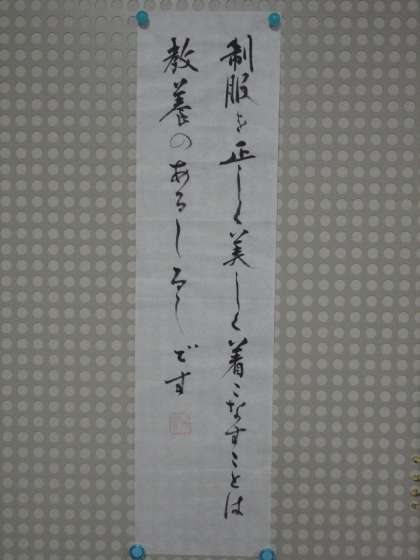 制服を正しく美しく着こなすことは
教養のあるしるしです